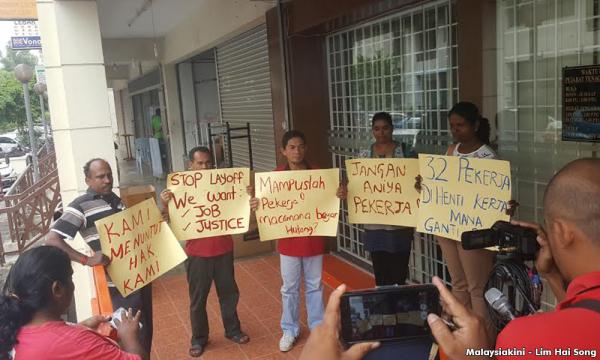 Vono
KAMI
MENUNTUT
HAK
KAMI
STOP LAYOFF
We want:
✓ JOB
✓ JUSTICE
Mampuslah
Pekerja!
macmana bayar
Hutang?
JANGAN
ANIYA
PEKERJA
32 PEKERJA
DI HENTI KERJA
MANA
GANTI
WAKTU
Malaysiakini - Lim Hai Song